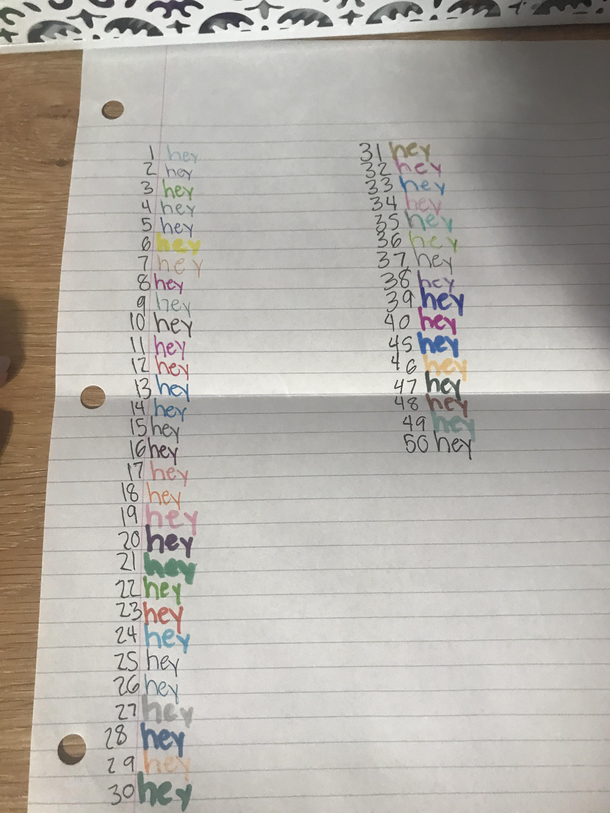 1 hey
2 hey
3 hey
4 hey
5 hey
6 hey
7 hey
8 hey
9 hey
10 hey
11 hey
12 hey
13 hey
14 hey
15 hey
16 hey
17 hey
18 hey
19 hey
20 hey
21 hey
22 hey
23 hey
24 hey
25 hey
26 hey
27 hey
28 hey
29 hey
30 hey
31 hey
32 hey
33 hey
34 hey
35 hey
36 hey
37 hey
38 hey
39 hey
40 hey
45 hey
46 hey
47 hey
48 hey
49 hey
50 hey